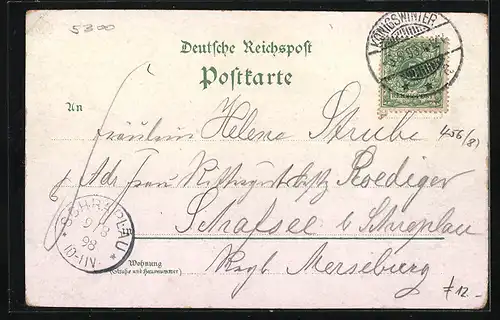 5300
KÖNIGSWINTER
Deutsche Reichspost
Postkarte
An
Fräulein Helene Strube
456/8)
p Adr Frau Rittergutsbesitz Roediger
Schafsee b Schraplau
SCHRAPLAU
9/8
98
10-11N.
Wohnung
(Straße und Hausnummer)
Rzgb Merseburg
#12.-